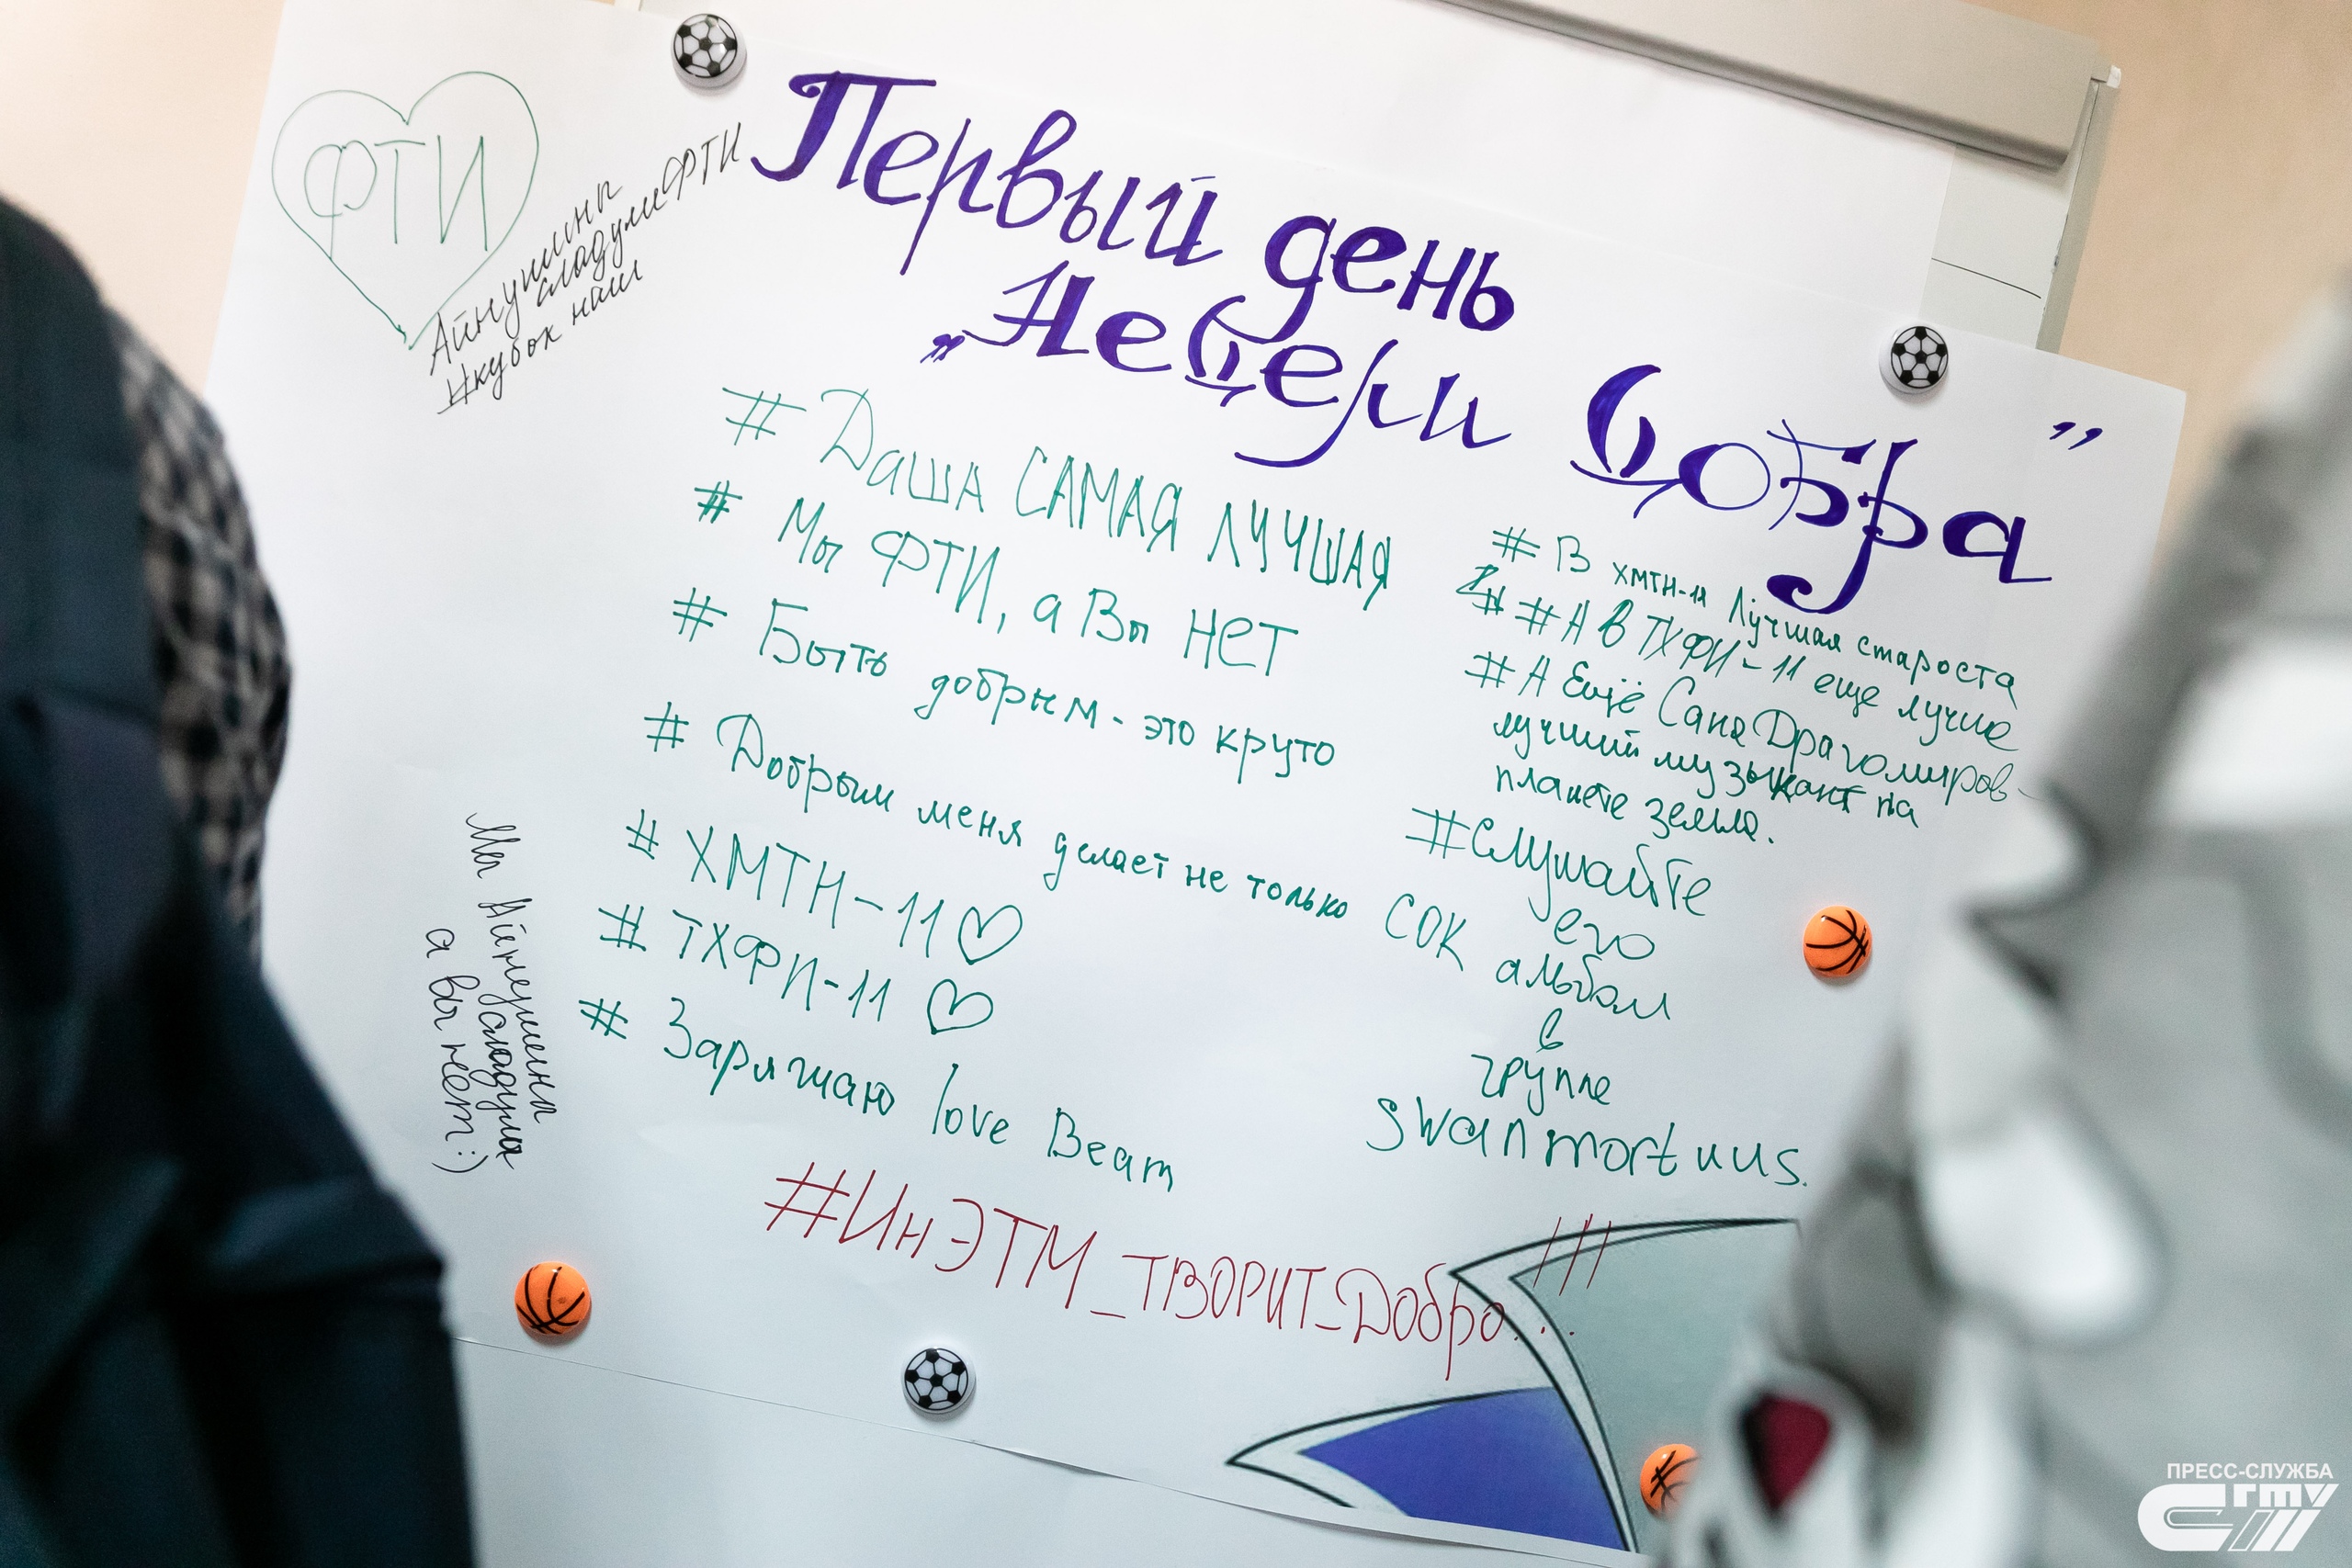 ФТИ
Айнушины
сладули ФТИ
#кубок наш
Первый день
„Недели Добра”
# Даша САМАЯ ЛУЧШАЯ
# Мы ФТИ, а Вы НЕТ
# Быть добрым - это круто
# Добрым меня делает не только СОК
# ХМТН-11
# ТХФИ-11
# Заряжаю love Beam
# В ХМТН-11 Лучшая староста
# А в ТХФИ-11 еще лучше
# А Ещё Саня Драгомиров-
лучший музыкант на
планете земля.
#Слушайте
его
альбом
в
группе
swanmortuus.
Мы Айнушины
а вы нет :)
#ИнЭТМ_ТВОРИТ_Добро...!!!
ПРЕСС-СЛУЖБА
СГТУ